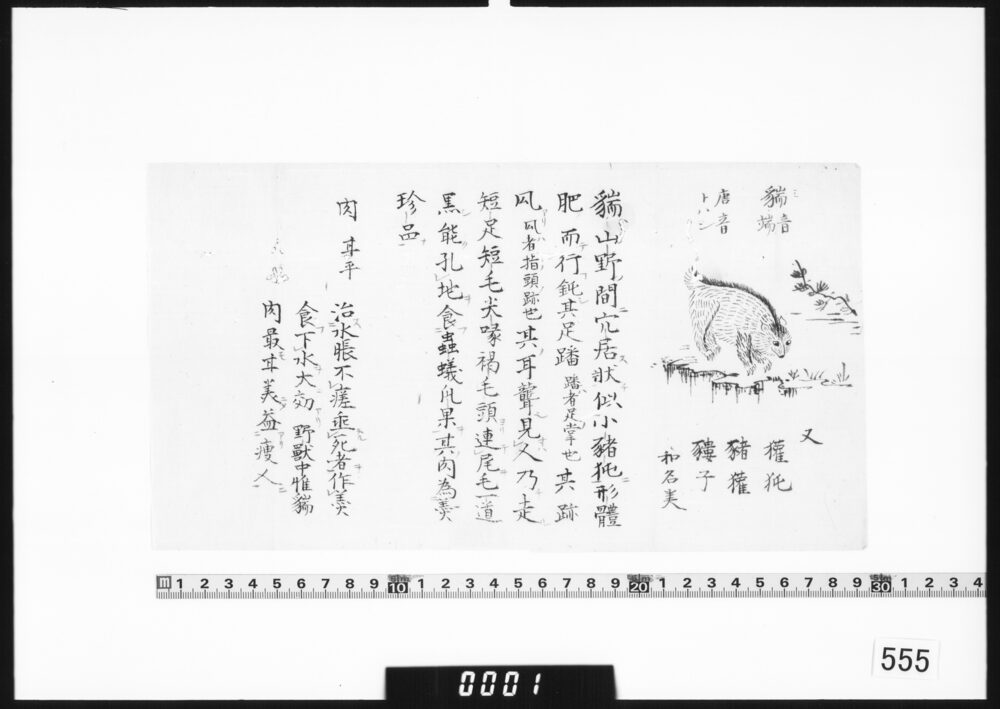 貒 音端 ミ
唐音
トハン
又
獾㹠
豬獾
貗子
和名 美
貒山野間穴居狀似小豬㹠形體
肥而行鈍其足蹯 蹯者足掌也 其跡
凨 凨者指頭跡也 其耳聾見人乃走
短足短毛尖喙褐毛頭連尾毛一道
黒能孔地食蟲蟻瓜果其肉為羹
珍品
肉 甘平
治水脹不瘥垂死者作羹
食下水大効 野獸中惟貒
肉最甘美益瘦人
m 1 2 3 4 5 6 7 8 9 10 1 2 3 4 5 6 7 8 9 20 1 2 3 4 5 6 7 8 9 30 1 2 3 4
555
0001